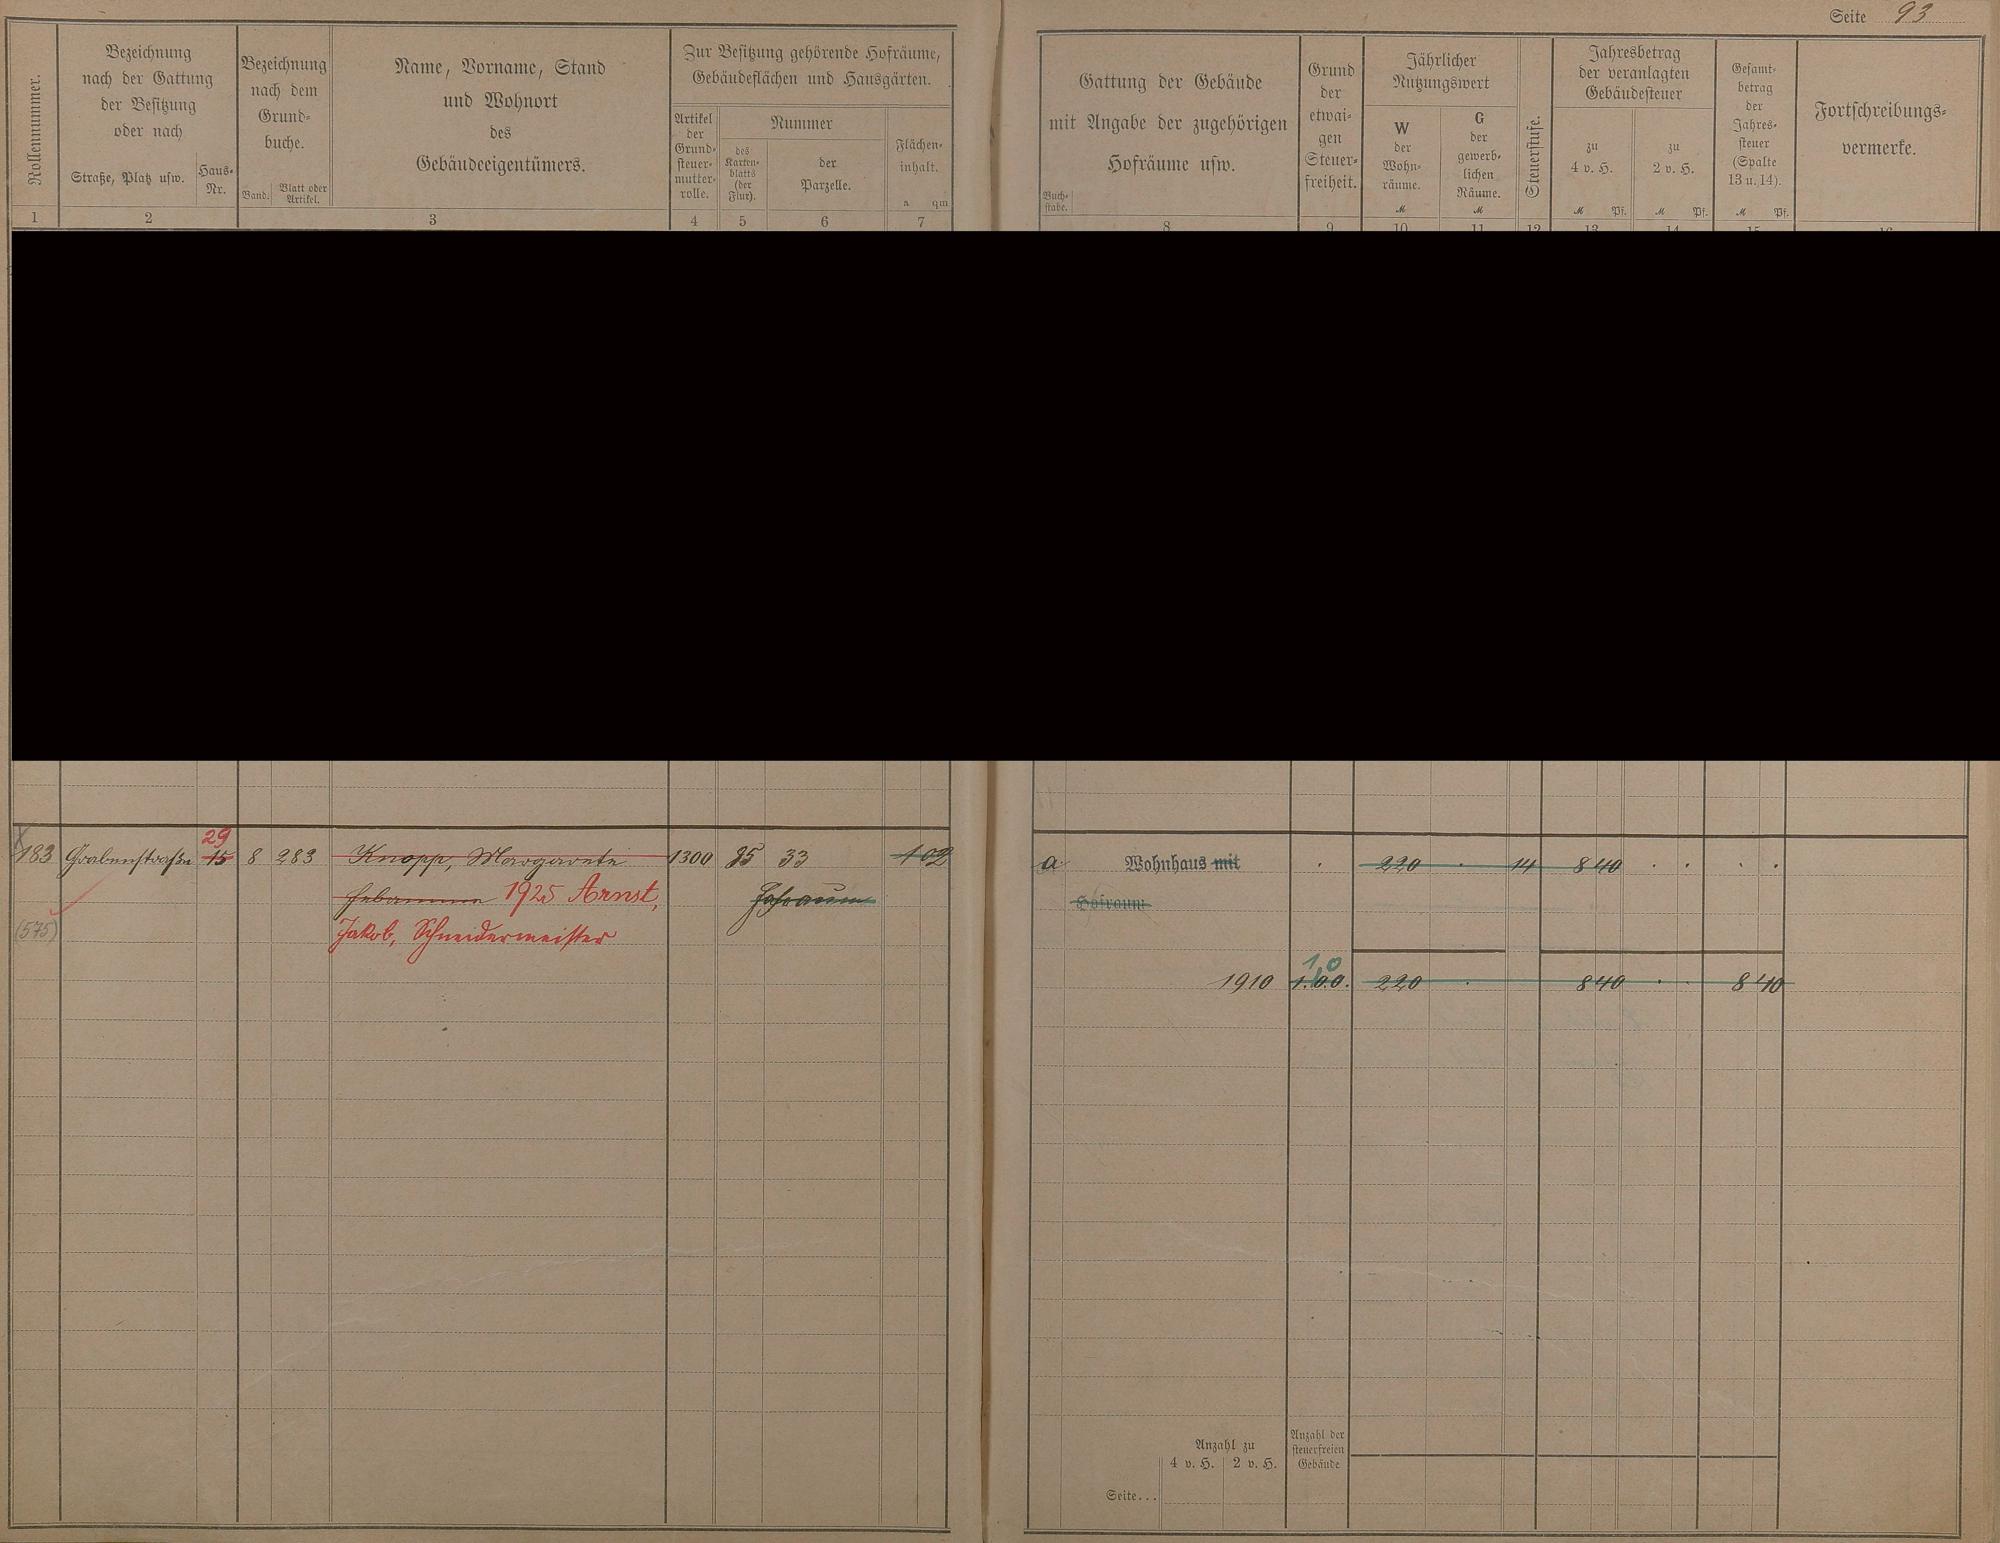 Seite 93
Rollennummer.
Bezeichnung
nach der Gattung
der Besitzung
oder nach
Straße, Platz usw.
Haus-
Nr.
Bezeichnung
nach dem
Grund-
buche.
Band.
Blatt oder
Artikel.
Name, Vorname, Stand
und Wohnort
des
Gebäudeeigentümers.
Zur Besitzung gehörende Hofräume,
Gebäudeflächen und Hausgärten.
Artikel
der
Grund-
steuer-
mutter-
rolle.
Nummer
des
Karten-
blatts
(der
Flur).
der
Parzelle.
Flächen-
inhalt.
a qm
1 2 3 4 5 6 7
Buch-
stabe.
Gattung der Gebäude
mit Angabe der zugehörigen
Hofräume usw.
Grund
der
etwai-
gen
Steuer-
freiheit.
Jährlicher
Nutzungswert
W
der
Wohn-
räume.
M
G
der
gewerb-
lichen
Räume.
M
Steuerstufe.
Jahresbetrag
der veranlagten
Gebäudesteuer
zu
4 v. H.
M Pf.
zu
2 v. H.
M Pf.
Gesamt-
betrag
der
Jahres-
steuer
(Spalte
13 u. 14).
M Pf.
Fortschreibungs-
vermerke.
8 9 10 11 12 13 14 15 16
29
183 Grabenstraße 15 8 283 Knopp, Margarete 1300 85 33 1 02
Hebamme 1925 Arnst, Hofraum
(575) Jakob, Schneidermeister
a Wohnhaus mit . 220 . 14 8 40 . . . .
Hofraum
1 0
1910 1.0.0. 220 . 8 40 . . 8 40
Anzahl zu
4 v. H. 2 v. H.
Anzahl der
steuerfreien
Gebäude
Seite...